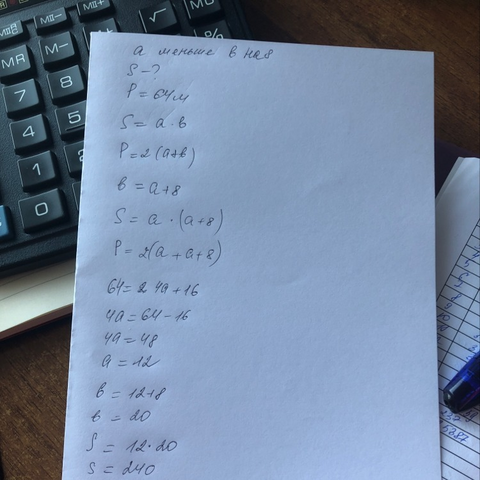 MR
M-
√
MU
7
8
4
5
1
2
0
а меньше в на 8
S - ?
P = 64 м
S = a · в
P = 2 (a+в)
в = a+8
S = a · (a+8)
P = 2(a + a+8)
64 = 4a+16
4a = 64 - 16
4a = 48
a = 12
в = 12+8
в = 20
S = 12 · 20
S = 240